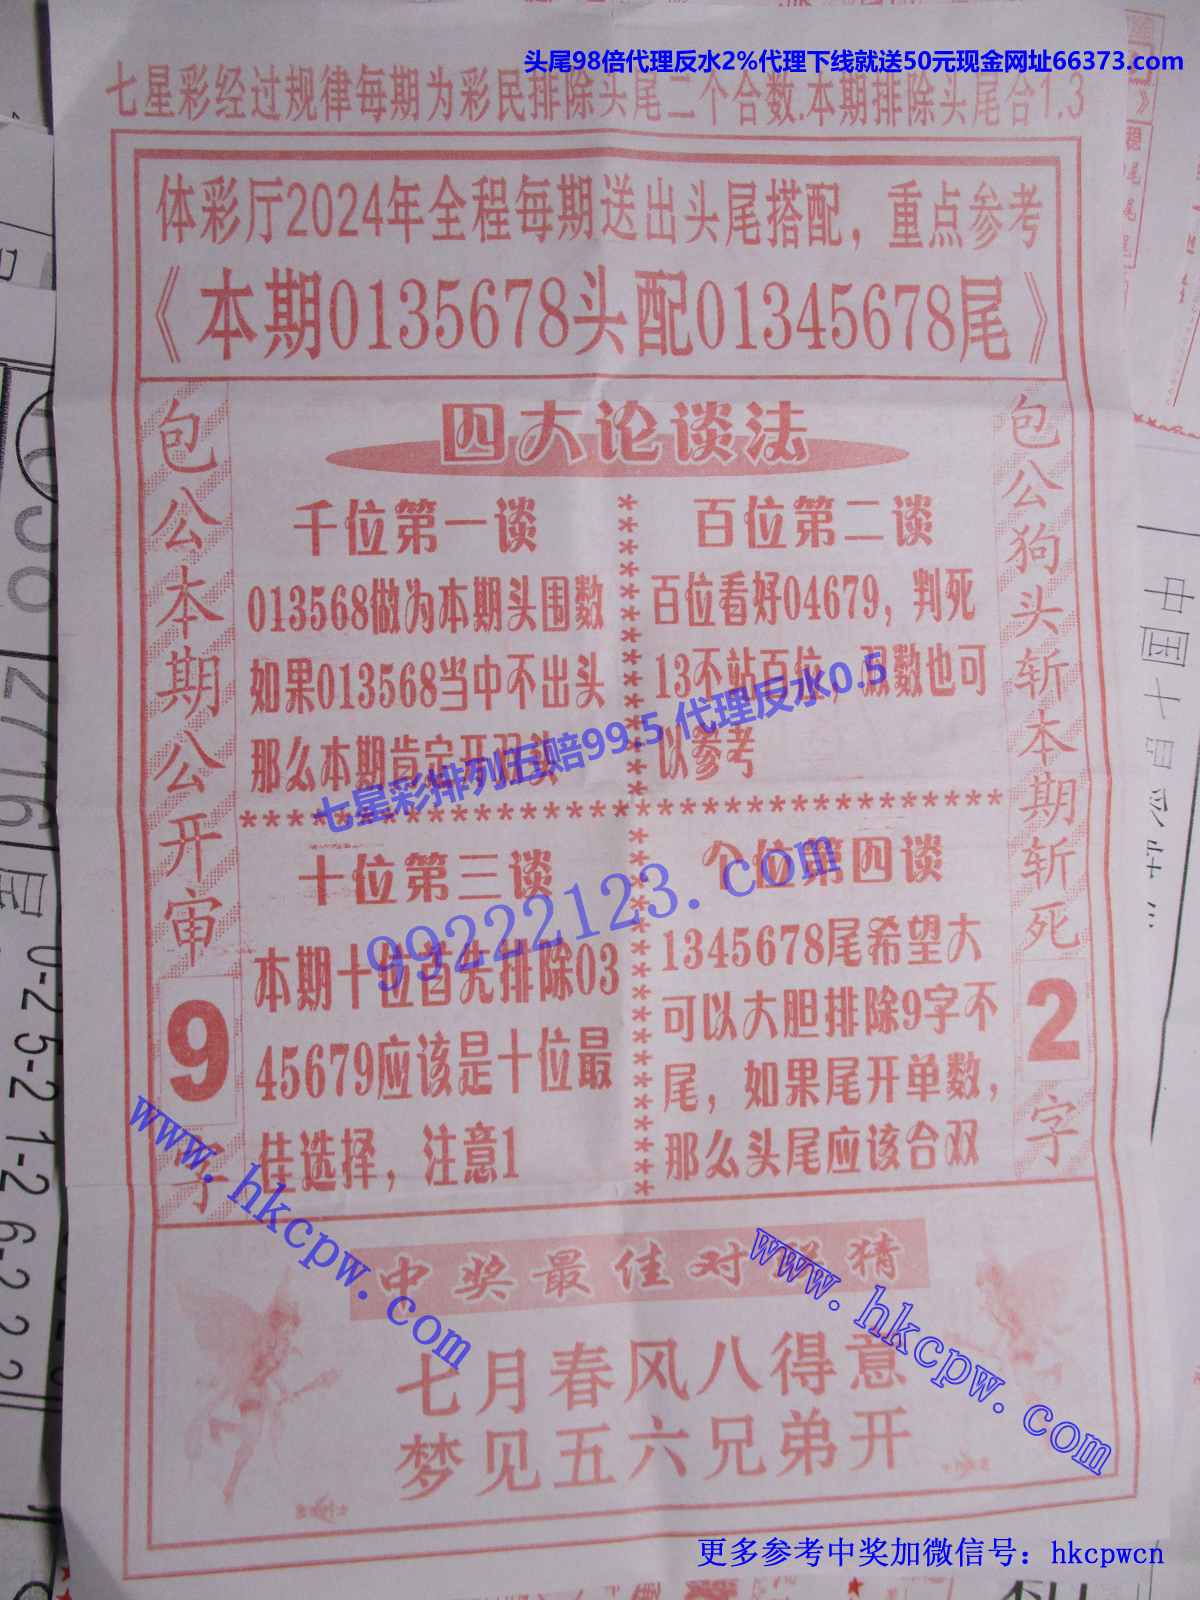 头尾98倍代理反水2%代理下线就送50元现金网址66373.com
七星彩经过规律每期为彩民排除头尾二个合数.本期排除头尾合1.3
体彩厅2024年全程每期送出头尾搭配，重点参考
《本期0135678头配01345678尾》
包公本期公开审9字
四大论谈法
千位第一谈
013568做为本期头围数
如果013568当中不出头
那么本期肯定开双头
百位第二谈
百位看好04679，判死
13不站百位，
数也可
以参考
七星彩排列五赔99.5 代理反水0.5
十位第三谈
本期十位首先排除03
45679应该是十位最
佳选择，注意1
个位第四谈
1345678尾希望大
可以大胆排除9字不
尾，如果尾开单数，
那么头尾应该合双
99222123.com
包公狗头斩本期斩死2字
www.hkcpw.com
www.hkcpw.com
中奖最佳对
猜
七月春风八得意
梦见五六兄弟开
更多参考中奖加微信号：hkcpwcn
0-25-21-26-222